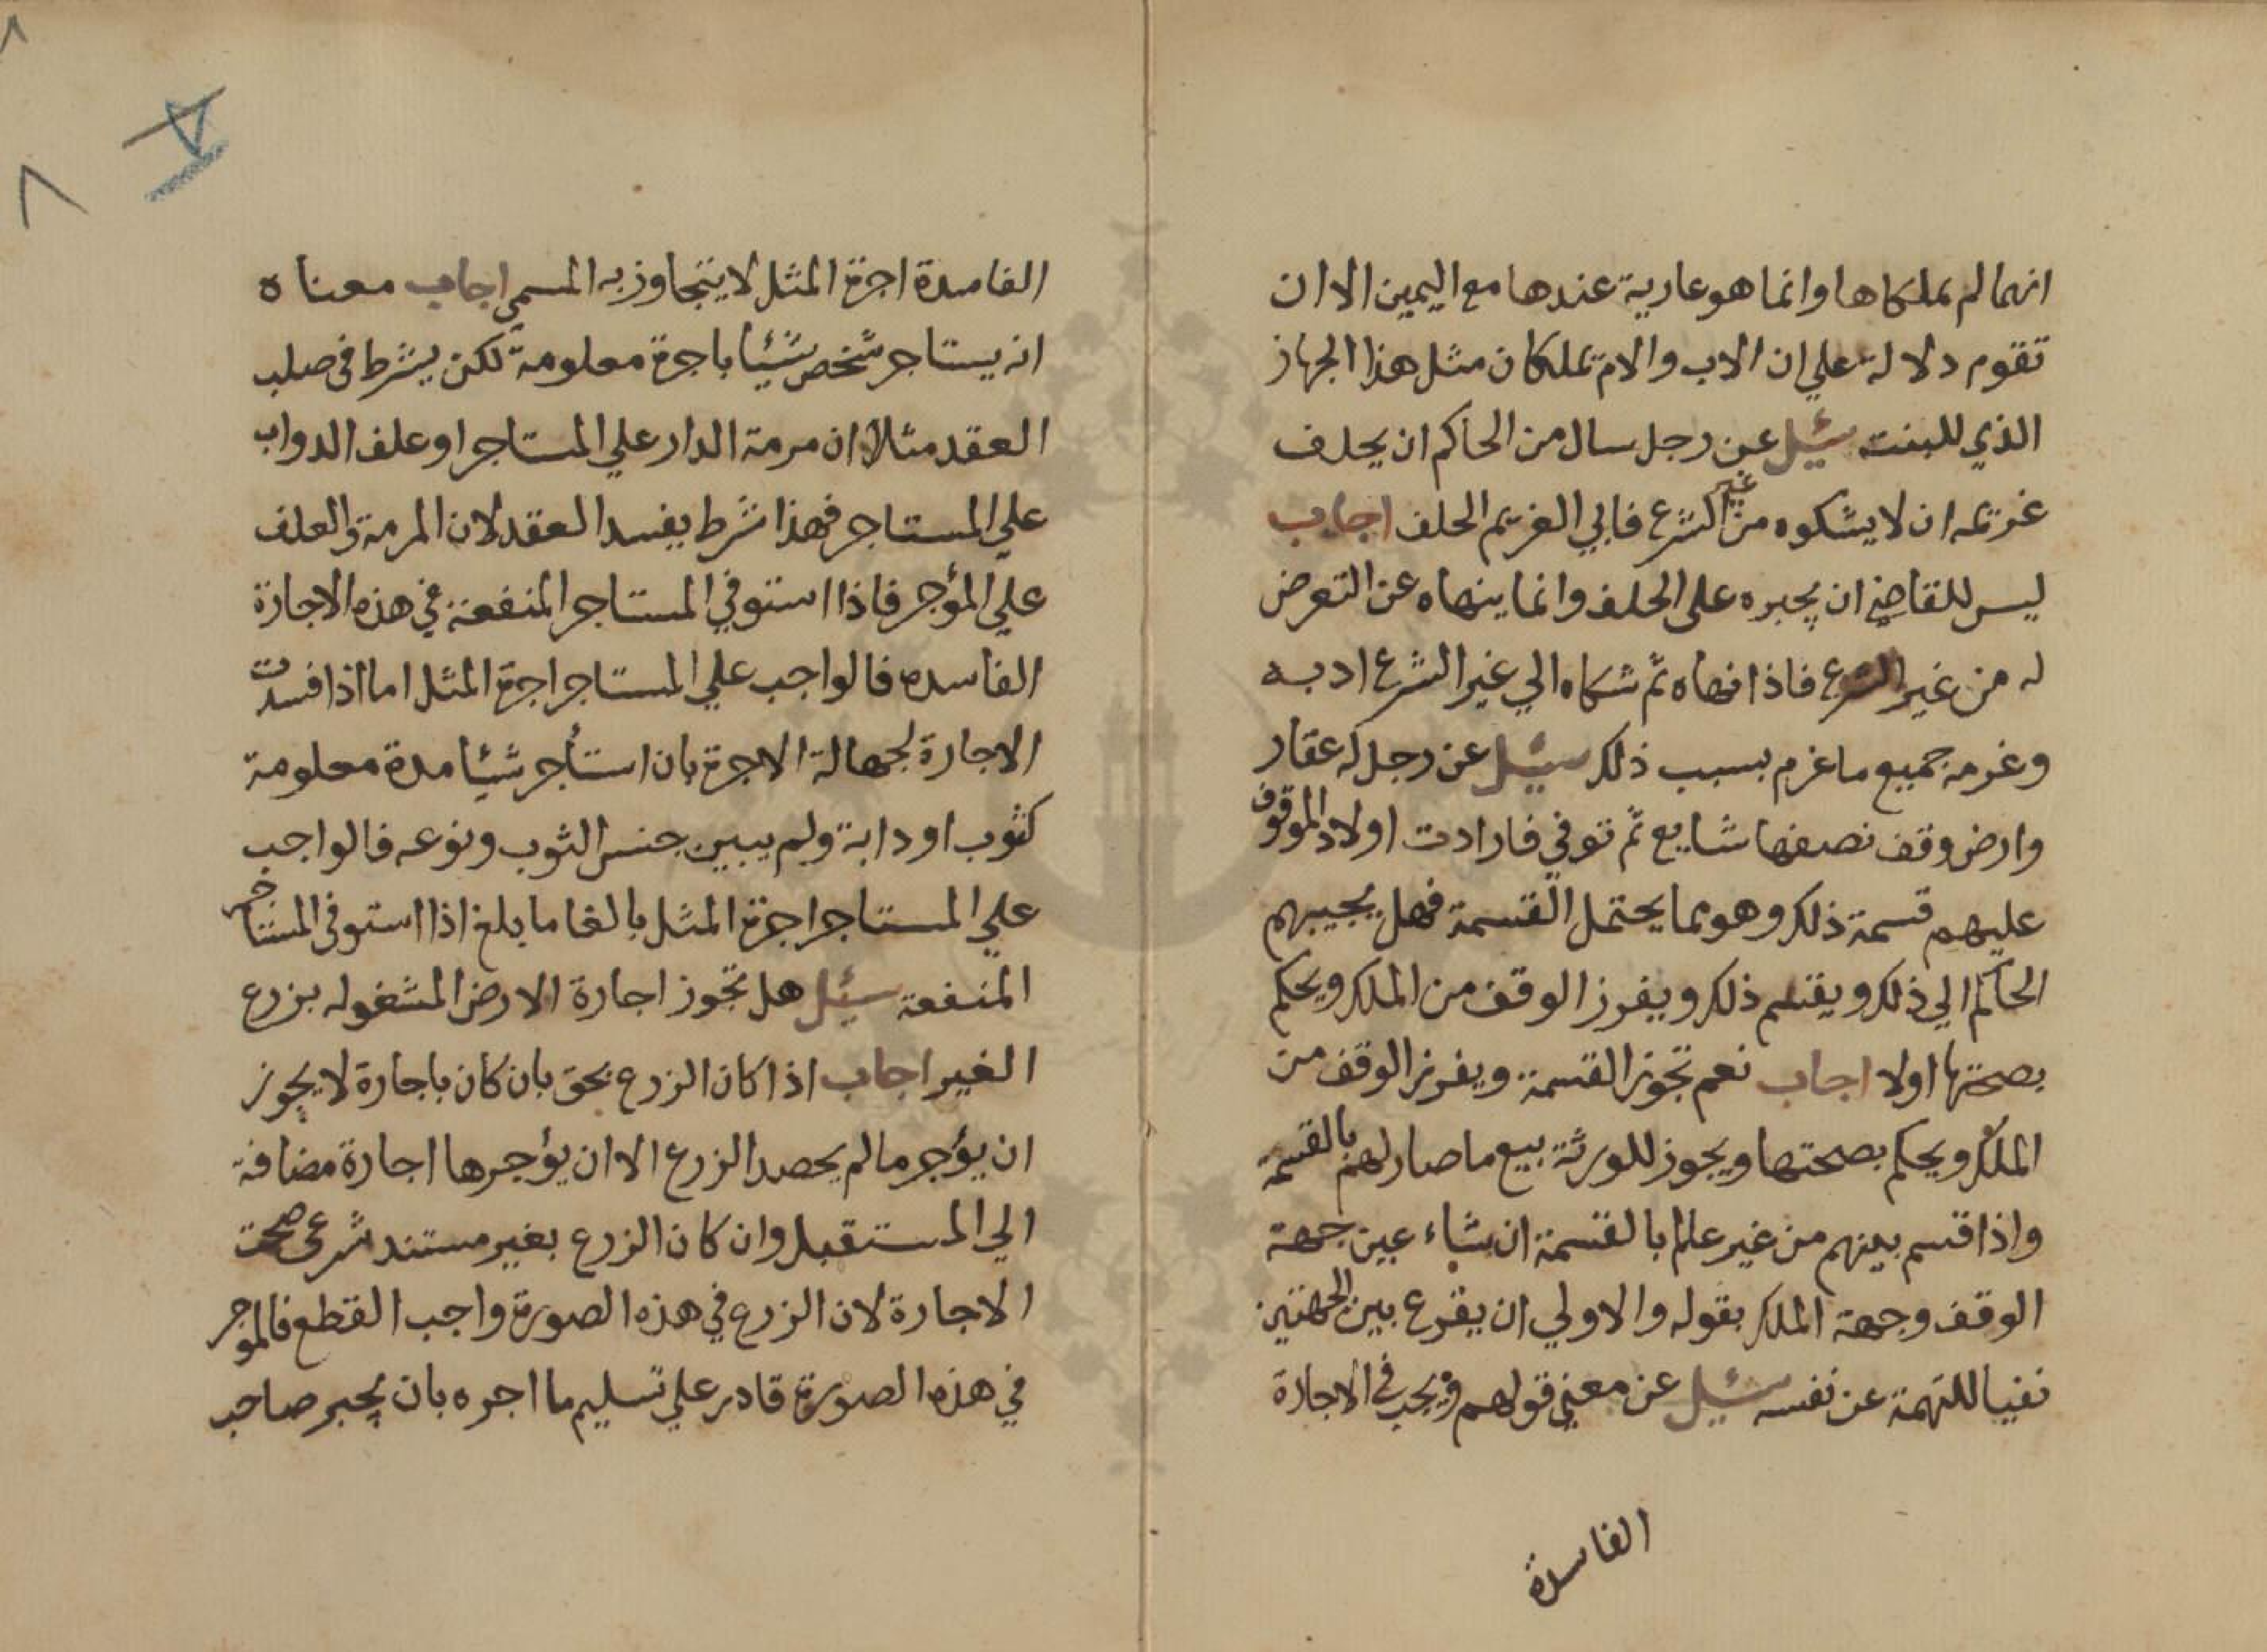 انهما لم يملكاها وانما هو عارية عندها مع اليمين الا ان
تقوم دلالة علي ان الاب والام يملكان مثل هذا الجهاز
الذي للبنت سئيل عن رجل سال من الحاكم ان يحلف
غريمه ان لا يشكوه من غير الشرع فابي الغريم الحلف اجاب
ليس للقاضي ان يجبره على الحلف وانما ينهاه عن التعرض
له من غير الشرع فاذا نهاه ثم شكاه الي غير الشرع ادبه
وغرمه جميع ما غرم بسبب ذلك سئيل عن رجل له عقار
وارض وقف نصفها شايع ثم توفي فارادت اولاد الموقوف
عليهم قسمة ذلك وهو مما يحتمل القسمة فهل يجيبهم
الحاكم الي ذلك ويقسم ذلك ويفرز الوقف من الملك ويحكم
بصحتها اولا اجاب نعم تجوز القسمة ويفرز الوقف من
الملك ويحكم بصحتها ويجوز للورثة بيع ما صار لهم بالقسمة
واذا قسم بينهم من غير علم بالقسمة ان شاء عين جهة
الوقف وجهة الملك بقوله والاولي ان يقرع بين الجهتين
نفيا للتهمة عن نفسه سئيل عن معني قولهم ويجب في الاجارة
الفاسدة
٨
٨
الفاسدة اجرة المثل لا يتجاوز به المسمي اجاب معناه
انه يستاجر شخص شيئا باجرة معلومة لكن يشرط في صلب
العقد مثلا ان مرمة الدار علي المستاجر او علف الدواب
علي المستاجر فهذا شرط يفسد العقد لان المرمة والعلف
علي المؤجر فاذا استوفي المستاجر المنفعة في هذه الاجارة
الفاسده فالواجب علي المستاجر اجرة المثل اما اذا فسدت
الاجارة لجهالة الاجرة بان استأجر شيئا مدة معلومة
كثوب او دابة ولم يبين جنس الثوب ونوعه فالواجب
علي المستاجر اجرة المثل بالغا ما بلغ اذا استوفي المستاجر
المنفعة سئيل هل تجوز اجارة الارض المشغوله بزرع
الغير اجاب اذا كان الزرع بحق بان كان باجارة لا يجوز
ان يؤجر ما لم يحصد الزرع الا ان يؤجرها اجارة مضافة
الي المستقبل وان كان الزرع بغير مستند شرعي صحت
الاجارة لان الزرع في هذه الصورة واجب القطع فالموجر
في هذه الصورة قادر علي تسليم ما اجره بان يجبر صاحب